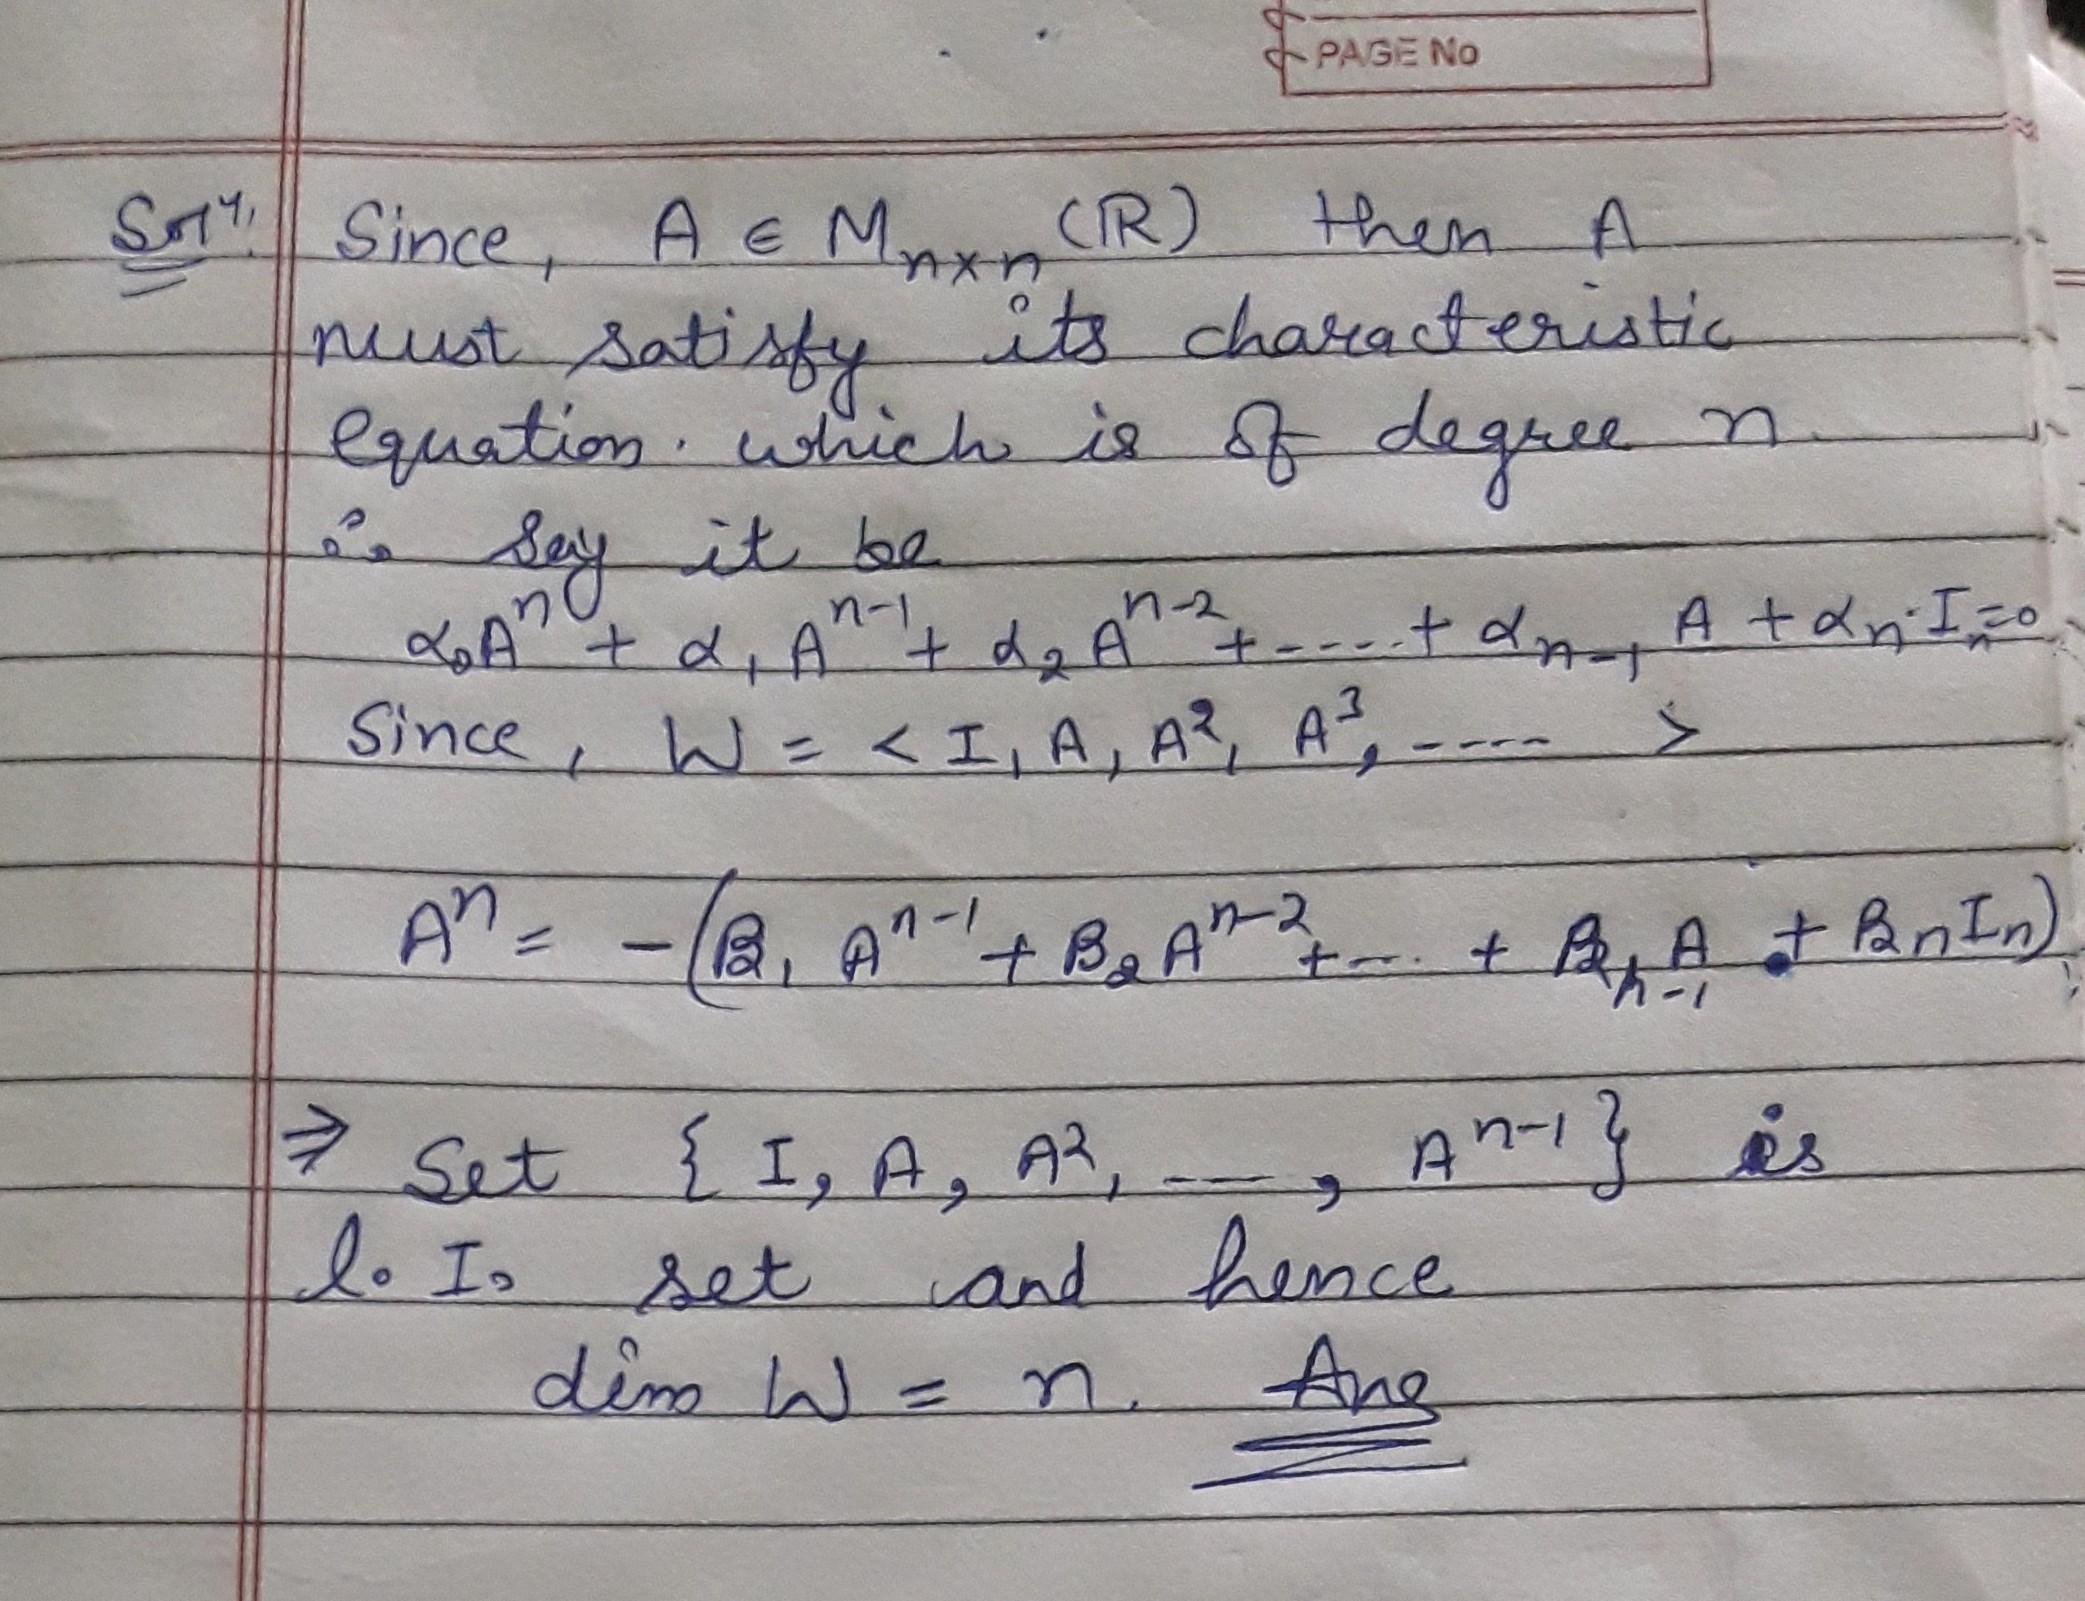 PAGE No
Solⁿ. Since, A ∈ Mₙₓₙ (ℝ) then A
must satisfy its characteristic
equation. which is of degree n.
∴ say it be
α₀Aⁿ + α₁Aⁿ⁻¹ + α₂Aⁿ⁻² + ..... + αₙ₋₁ A + αₙ·Iₙ=0
Since, W = < I, A, A², A³, ---- >
Aⁿ = -(B₁ Aⁿ⁻¹ + B₂ Aⁿ⁻² + ... + Bₙ₋₁ A + BₙIₙ)
⇒ Set { I, A, A², ---, Aⁿ⁻¹} is
l. I. set and hence
dim W = n. Ans